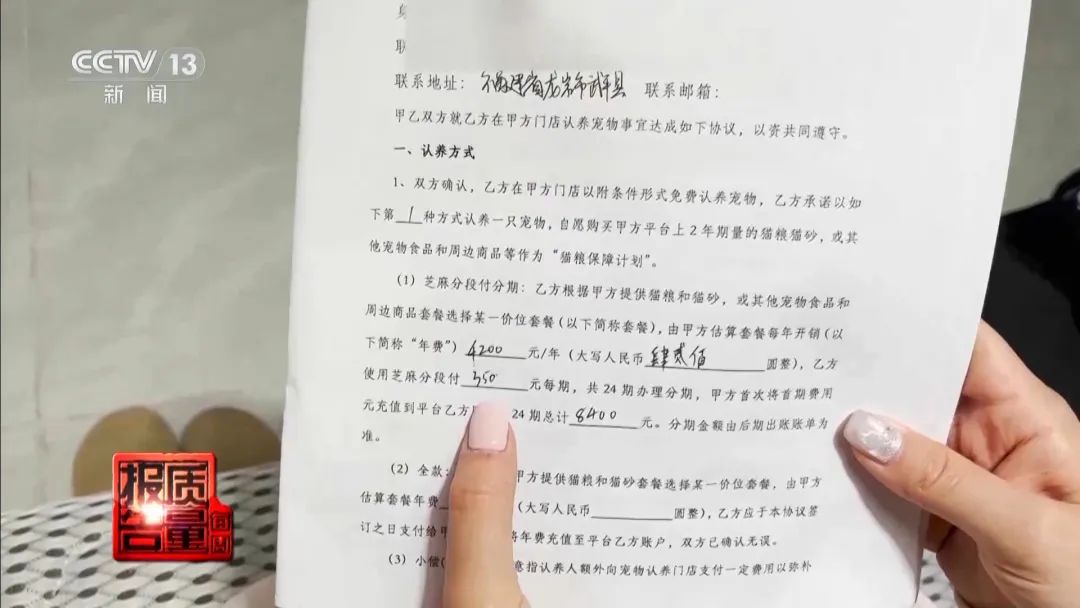 CCTV 13
新闻
联系地址：福建省龙岩市武平县 联系邮箱：
甲乙双方就乙方在甲方门店认养宠物事宜达成如下协议，以资共同遵守。
一、认养方式
1、双方确认，乙方在甲方门店以附条件形式免费认养宠物，乙方承诺以如
下第1种方式认养一只宠物，自愿购买甲方平台上2年期量的猫粮猫砂，或其
他宠物食品和周边商品等作为“猫粮保障计划”。
（1）芝麻分段付分期：乙方根据甲方提供猫粮和猫砂，或其他宠物食品和
周边商品套餐选择某一价位套餐（以下简称套餐），由甲方估算套餐每年开销（以
下简称“年费”）4200元/年（大写人民币肆贰佰圆整），乙方
使用芝麻分段付350元每期，共24期办理分期，甲方首次将首期费用
元充值到平台乙方 24期总计8400元。分期金额由后期出账账单为
准。
（2）全款： 甲方提供猫粮和猫砂套餐选择某一价位套餐，由甲方
估算套餐年费 （大写人民币 圆整），乙方应于本协议签
订之日支付给甲 将年费充值至平台乙方账户，双方已确认无误。
（3）小偿 意指认养人额外向宠物认养门店支付一定费用以弥补
质量报告